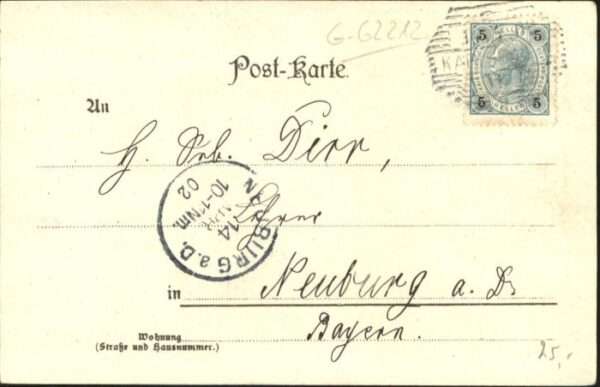 G-G2212
Post-Karte.
5 5
KA
5 5
An
H. Seb. Dirr,
NEUBURG a.D.
14 APR 02
10-11 Nm.
Lehrer
in Neuburg a. D.
Bayern.
Wohnung
(Straße und Hausnummer.)
25,-